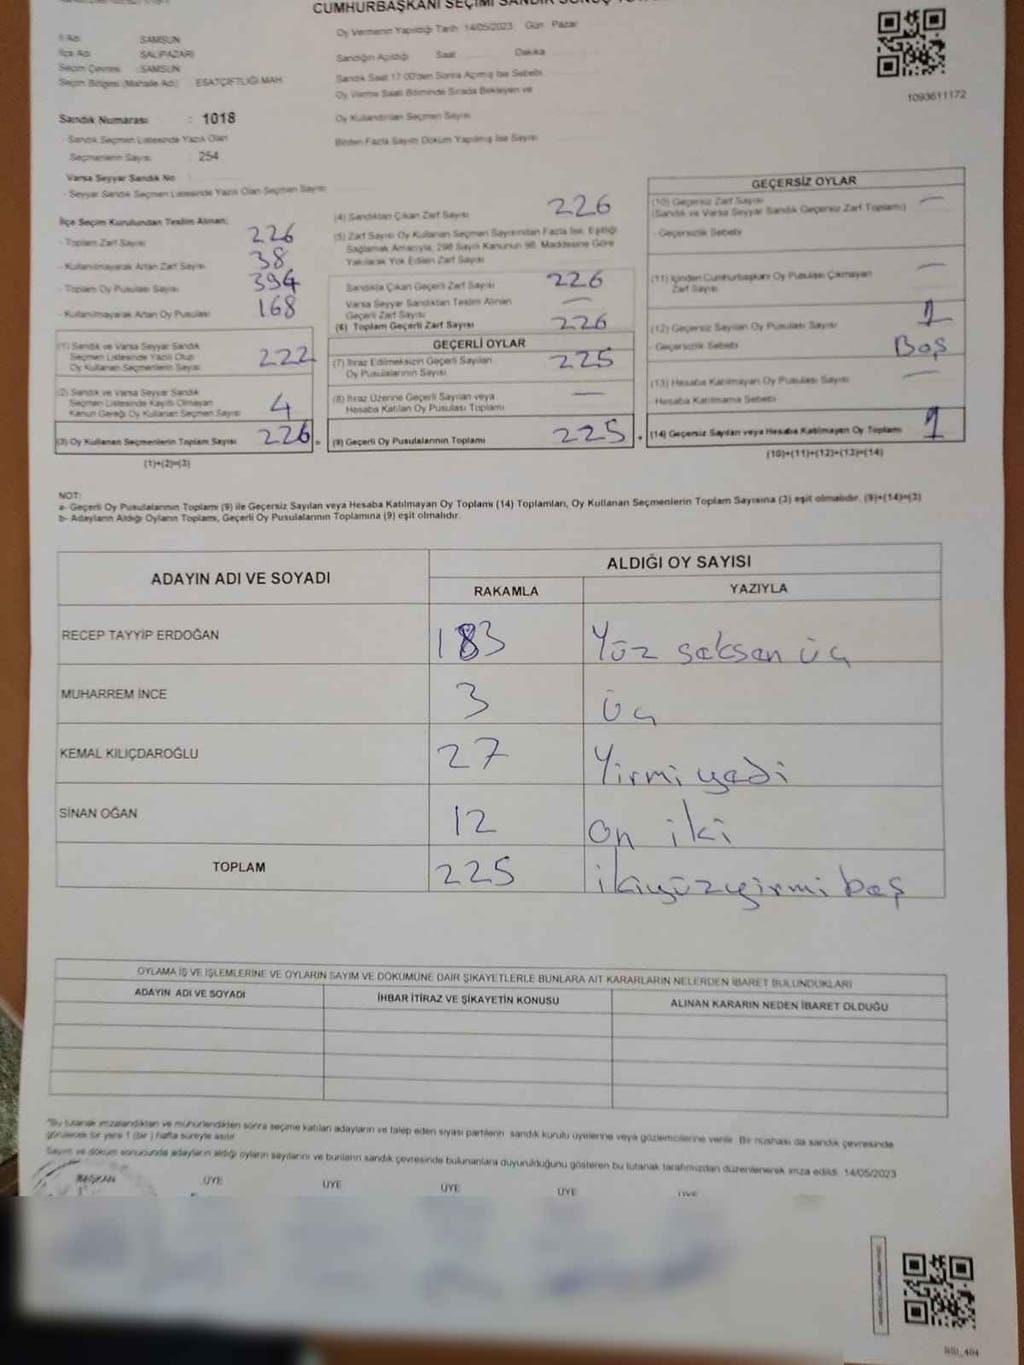 CUMHURBAŞKANI SEÇİMİ SANDIK SONUÇ
İl Adı SAMSUN
İlçe Adı SALIPAZARI
Seçim Çevresi SAMSUN
Seçim Bölgesi (Mahalle Adı) ESATÇİFTLİĞİ MAH
Sandık Numarası : 1018
- Sandık Seçmen Listesinde Yazılı Olan
Seçmenlerin Sayısı : 254
Varsa Seyyar Sandık No
- Seyyar Sandık Seçmen Listesinde Yazılı Olan Seçmen Sayısı
Oy Vermenin Yapıldığı Tarih 14/05/2023 Gün Pazar
Sandığın Açıldığı Saat Dakika
Sandık Saat 17:00'den Sonra Açılmış İse Sebebi
Oy Verme Saati Bitiminde Sırada Bekleyen ve
Oy Kullandırılan Seçmen Sayısı
Birden Fazla Sayım Döküm Yapılmış İse Sayısı
1093611172
İlçe Seçim Kurulundan Teslim Alınan;
- Toplam Zarf Sayısı 226
- Kullanılmayarak Artan Zarf Sayısı 38
- Toplam Oy Pusulası Sayısı 394
- Kullanılmayarak Artan Oy Pusulası 168
(1) Sandık ve Varsa Seyyar Sandık
Seçmen Listesinde Yazılı Olup
Oy Kullanan Seçmenlerin Sayısı 222
(2) Sandık ve Varsa Seyyar Sandık
Seçmen Listesinde Kayıtlı Olmayan
Kanun Gereği Oy Kullanan Seçmen Sayısı 4
(3) Oy Kullanan Seçmenlerin Toplam Sayısı 226 =
(1)+(2)=(3)
(4) Sandıktan Çıkan Zarf Sayısı 226
(5) Zarf Sayısı Oy Kullanan Seçmen Sayısından Fazla İse, Eşitliği
Sağlamak Amacıyla, 298 Sayılı Kanunun 98. Maddesine Göre
Yakılarak Yok Edilen Zarf Sayısı
Sandıkta Çıkan Geçerli Zarf Sayısı 226
Varsa Seyyar Sandıktan Teslim Alınan
Geçerli Zarf Sayısı —
(6) Toplam Geçerli Zarf Sayısı 226
GEÇERLİ OYLAR
(7) İtiraz Edilmeksizin Geçerli Sayılan
Oy Pusulalarının Sayısı 225
(8) İtiraz Üzerine Geçerli Sayılan veya
Hesaba Katılan Oy Pusulası Toplamı —
(9) Geçerli Oy Pusulalarının Toplamı 225 +
GEÇERSİZ OYLAR
(10) Geçersiz Zarf Sayısı —
(Sandık ve Varsa Seyyar Sandık Geçersiz Zarf Toplamı)
- Geçersizlik Sebebi
(11) İçinden Cumhurbaşkanı Oy Pusulası Çıkmayan
Zarf Sayısı —
(12) Geçersiz Sayılan Oy Pusulası Sayısı 1
- Geçersizlik Sebebi Boş
(13) Hesaba Katılmayan Oy Pusulası Sayısı —
- Hesaba Katılmama Sebebi
(14) Geçersiz Sayılan veya Hesaba Katılmayan Oy Toplamı 1
(10)+(11)+(12)+(13)=(14)
NOT:
a- Geçerli Oy Pusulalarının Toplamı (9) ile Geçersiz Sayılan veya Hesaba Katılmayan Oy Toplamı (14) Toplamları, Oy Kullanan Seçmenlerin Toplam Sayısına (3) eşit olmalıdır. (9)+(14)=(3)
b- Adayların Aldığı Oyların Toplamı, Geçerli Oy Pusulalarının Toplamına (9) eşit olmalıdır.
ADAYIN ADI VE SOYADI ALDIĞI OY SAYISI
RAKAMLA YAZIYLA
RECEP TAYYİP ERDOĞAN 183 Yüz seksen üç
MUHARREM İNCE 3 üç
KEMAL KILIÇDAROĞLU 27 Yirmi yedi
SİNAN OĞAN 12 on iki
TOPLAM 225 ikiyüzyirmi beş
OYLAMA İŞ VE İŞLEMLERİNE VE OYLARIN SAYIM VE DÖKÜMÜNE DAİR ŞİKAYETLERLE BUNLARA AİT KARARLARIN NELERDEN İBARET BULUNDUKLARI
ADAYIN ADI VE SOYADI İHBAR İTİRAZ VE ŞİKAYETİN KONUSU ALINAN KARARIN NEDEN İBARET OLDUĞU
"Bu tutanak imzalandıktan ve mühürlendikten sonra seçime katılan adayların ve talep eden siyasi partilerin sandık kurulu üyelerine veya gözlemcilerine verilir. Bir nüshası da sandık çevresinde
görülecek bir yere 1 (bir) hafta süreyle asılır.
Sayım ve döküm sonucunda adayların aldığı oyların sayılarını ve bunların sandık çevresinde bulunanlara duyurulduğunu gösteren bu tutanak tarafımızdan düzenlenerek imza edildi. 14/05/2023
BAŞKAN ÜYE ÜYE ÜYE ÜYE ÜYE